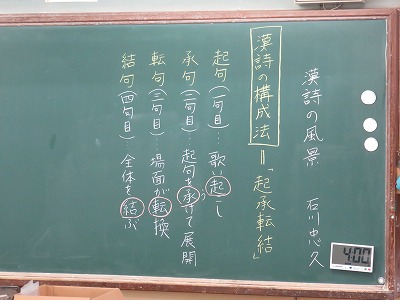 漢詩の風景 石川忠久
漢詩の構成法=「起承転結」
起句(一句目)…歌い起し
承句(二句目)…起句を承けて展開
転句(三句目)…場面が転換
結句(四句目) 全体を結ぶ
4:00